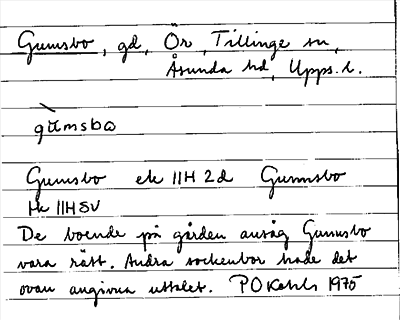 Gumsbo, gd, Ör, Tillinge sn,
Åsunda hd, Upps. l.
gumsbo
Gumsbo ek 11H 2d Gummsbo
Hk 11H SV
De boende på gården ansåg Gumsbo
vara rätt. Andra sockenbor hade det
ovan angivna uttalet. PO 1975